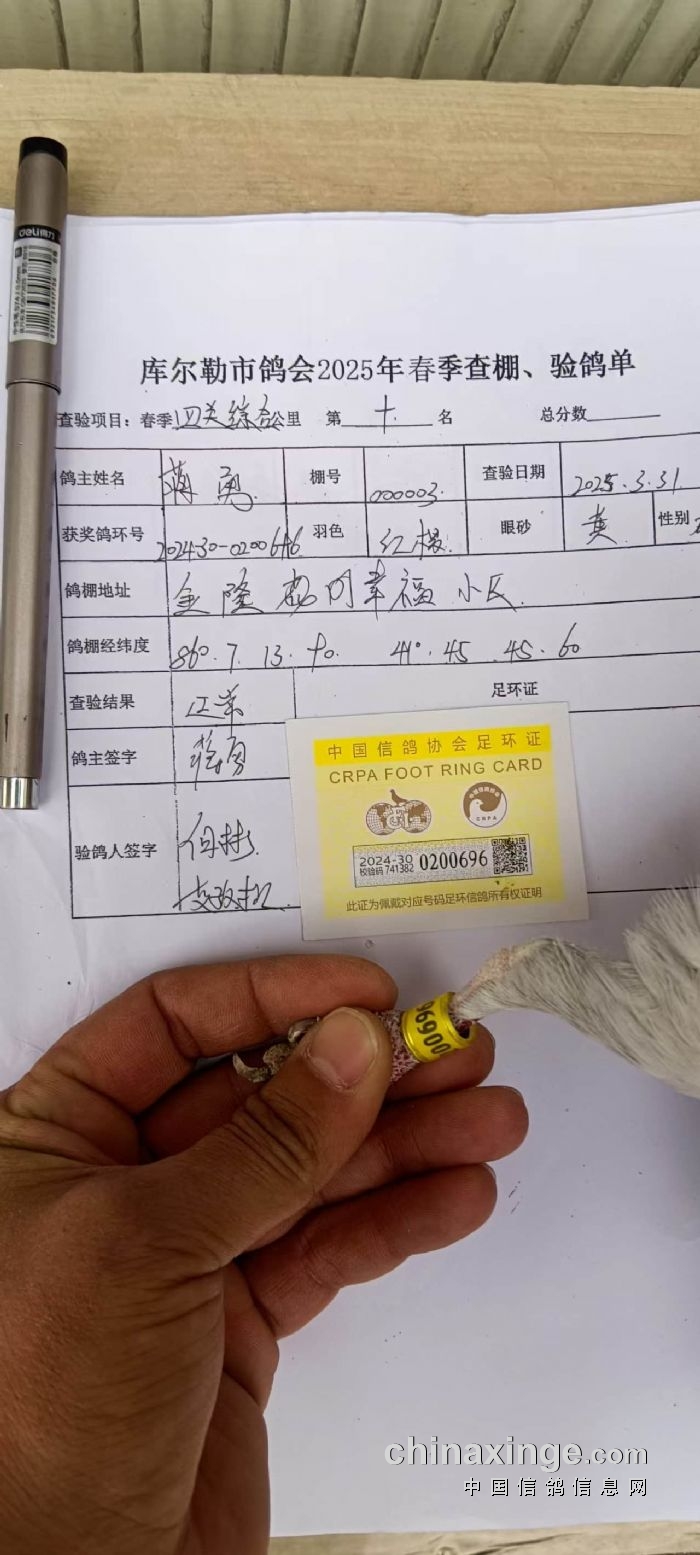 deli得力
库尔勒市鸽会2025年春季查棚、验鸽单
查验项目：春季四关综合公里 第十名 总分数
鸽主姓名 蒋勇 棚号 000003 查验日期 2025.3.31
获奖鸽环号 羽色 红楞 眼砂 黄 性别
鸽棚地址 金隆 幸福小区
鸽棚经纬度 86°.7.13.90. 41°.45.45.60
查验结果 正常 足环证
鸽主签字 蒋勇
验鸽人签字
中国信鸽协会足环证
CRPA FOOT RING CARD
CRPA
2024-30 0200696
校验码 741382
此证为佩戴对应号码足环信鸽所有权证明
96900
chinaxinge.com
中国信鸽信息网